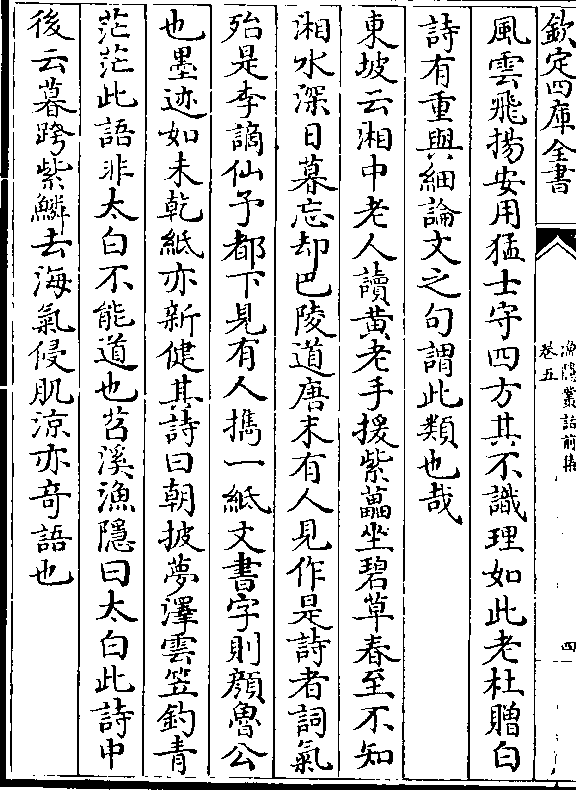 欽定四庫全書
漁隱叢話前集
卷五
四
風雲飛揚安用猛士守四方其不識理如此老杜贈白
詩有重與細論文之句謂此類也哉
東坡云湘中老人讀黃老手援紫藟坐碧草春至不知
湘水深日暮忘却巴陵道唐末有人見作是詩者詞氣
殆是李謫仙予都下見有人攜一紙文書字則顔魯公
也墨迹如未乾紙亦新健其詩曰朝披夢澤雲笠釣青
茫茫此語非太白不能道也苕溪漁隱曰太白此詩中
後云暮跨紫鱗去海氣侵肌涼亦竒語也